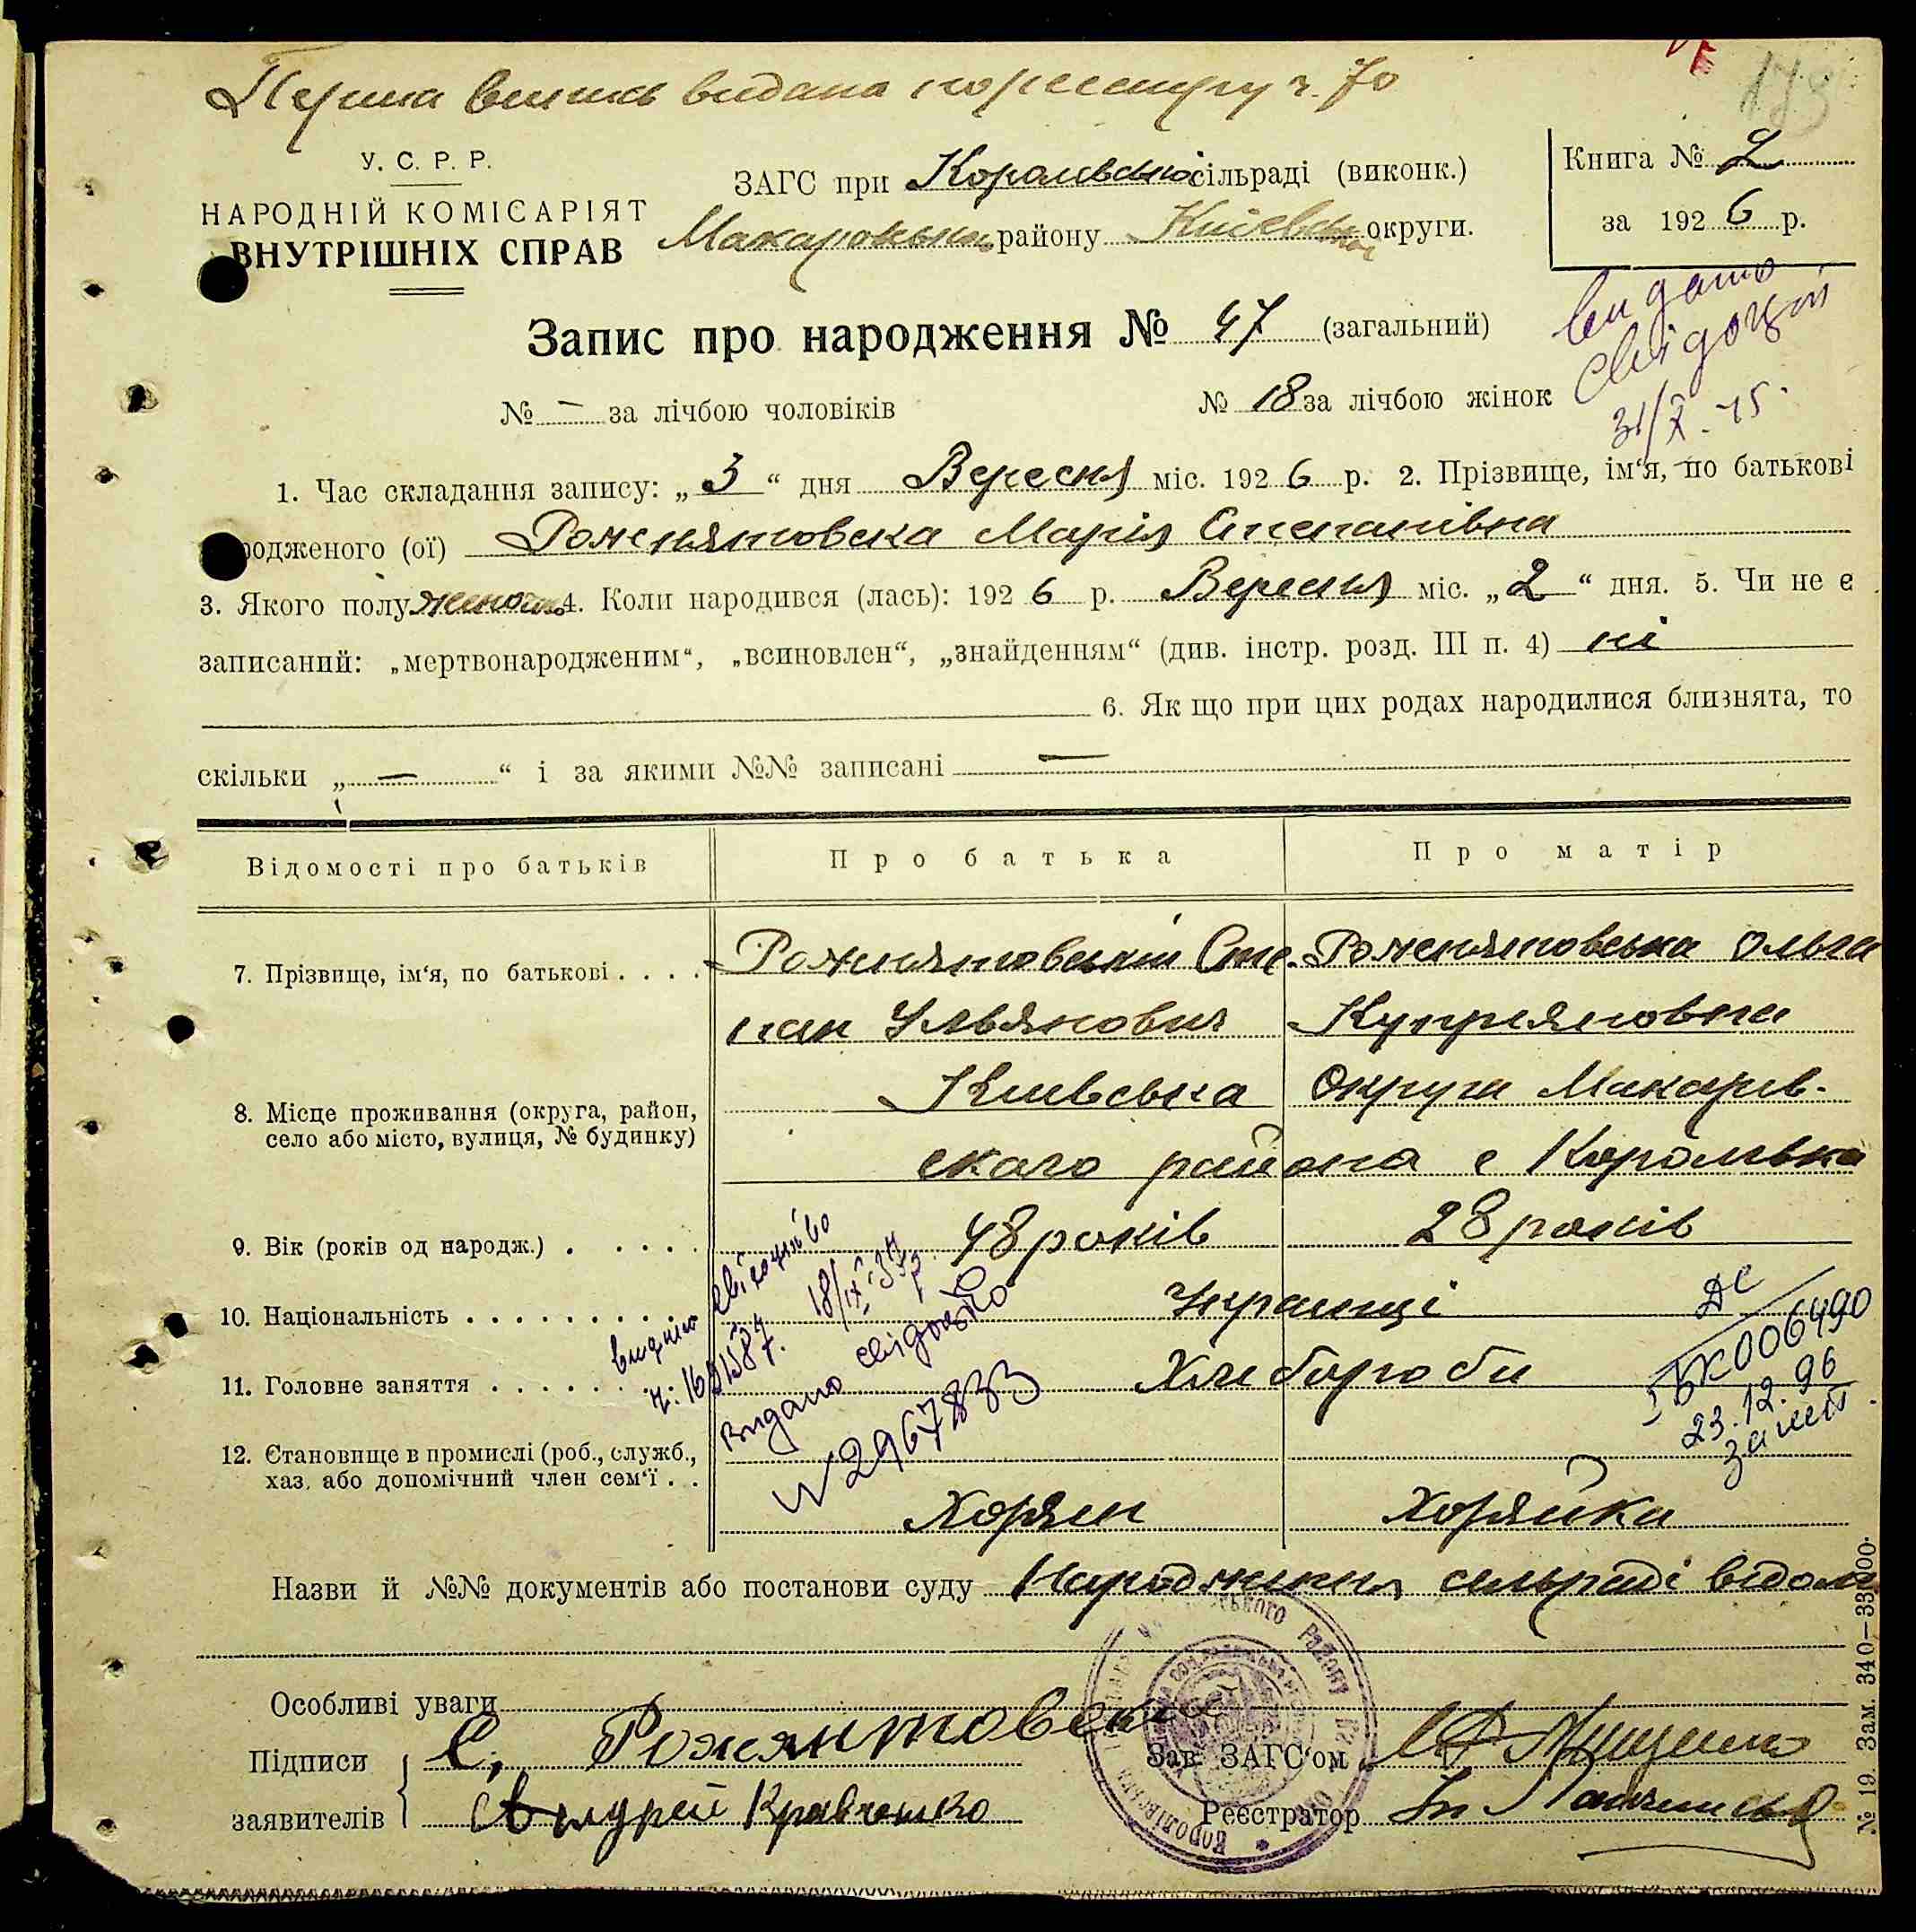 Перша випись видана по реєстру ч. 70
173
У. С. Р. Р.
НАРОДНІЙ КОМІСАРІЯТ
ВНУТРІШНІХ СПРАВ
ЗАГС при Королівській сільраді (виконк.)
району Київської округи.
Книга № 2
за 1926 р.
Запис про народження № 47 (загальний)
№ – за лічбою чоловіків № 18 за лічбою жінок
видано
31/X-45.
1. Час складання запису: „3“ дня Вересня міс. 1926 р. 2. Прізвище, ім'я, по батькові
родженого (ої) Рожнятовска Марія Степанівна
3. Якого полу 4. Коли народився (лась): 1926 р. Вересня міс. „2“ дня. 5. Чи не є
записаний: „мертвонародженим“, „всиновлен“, „знайденням“ (див. інстр. розд. III п. 4) ні
6. Як що при цих родах народилися близнята, то
скільки „ — “ і за якими №№ записані —
Відомості про батьків
Про батька
Про матір
7. Прізвище, ім'я, по батькові . . . .
Рожнятовський Сте-
пан Ульянович
Рожнятовська Ольга
Куприяновна
8. Місце проживання (округа, район,
село або місто, вулиця, № будинку)
Київська Округа Макарів-
ского района с Королівка
9. Вік (років од народж.) . . . . .
48 років
28 років
10. Національність . . . . . . . . .
Українці
11. Головне заняття . . . . . .
Хлибороби
видано свідоцтво
18/IX-37 р.
Видано свідоцтво
N 2967833
006490
23.12.96
12. Становище в промислі (роб., служб.,
хаз. або допомічний член сем'ї . . .
Хозяин
Хозяйка
Назви й №№ документів або постанови суду Народження сельраді відомо
Особливі уваги
Підписи
заявителів
С. Рожантовские
Андрей Кравченко
Зав. ЗАГС'ом
Реєстратор
№ 19. Зам. 340—33000.